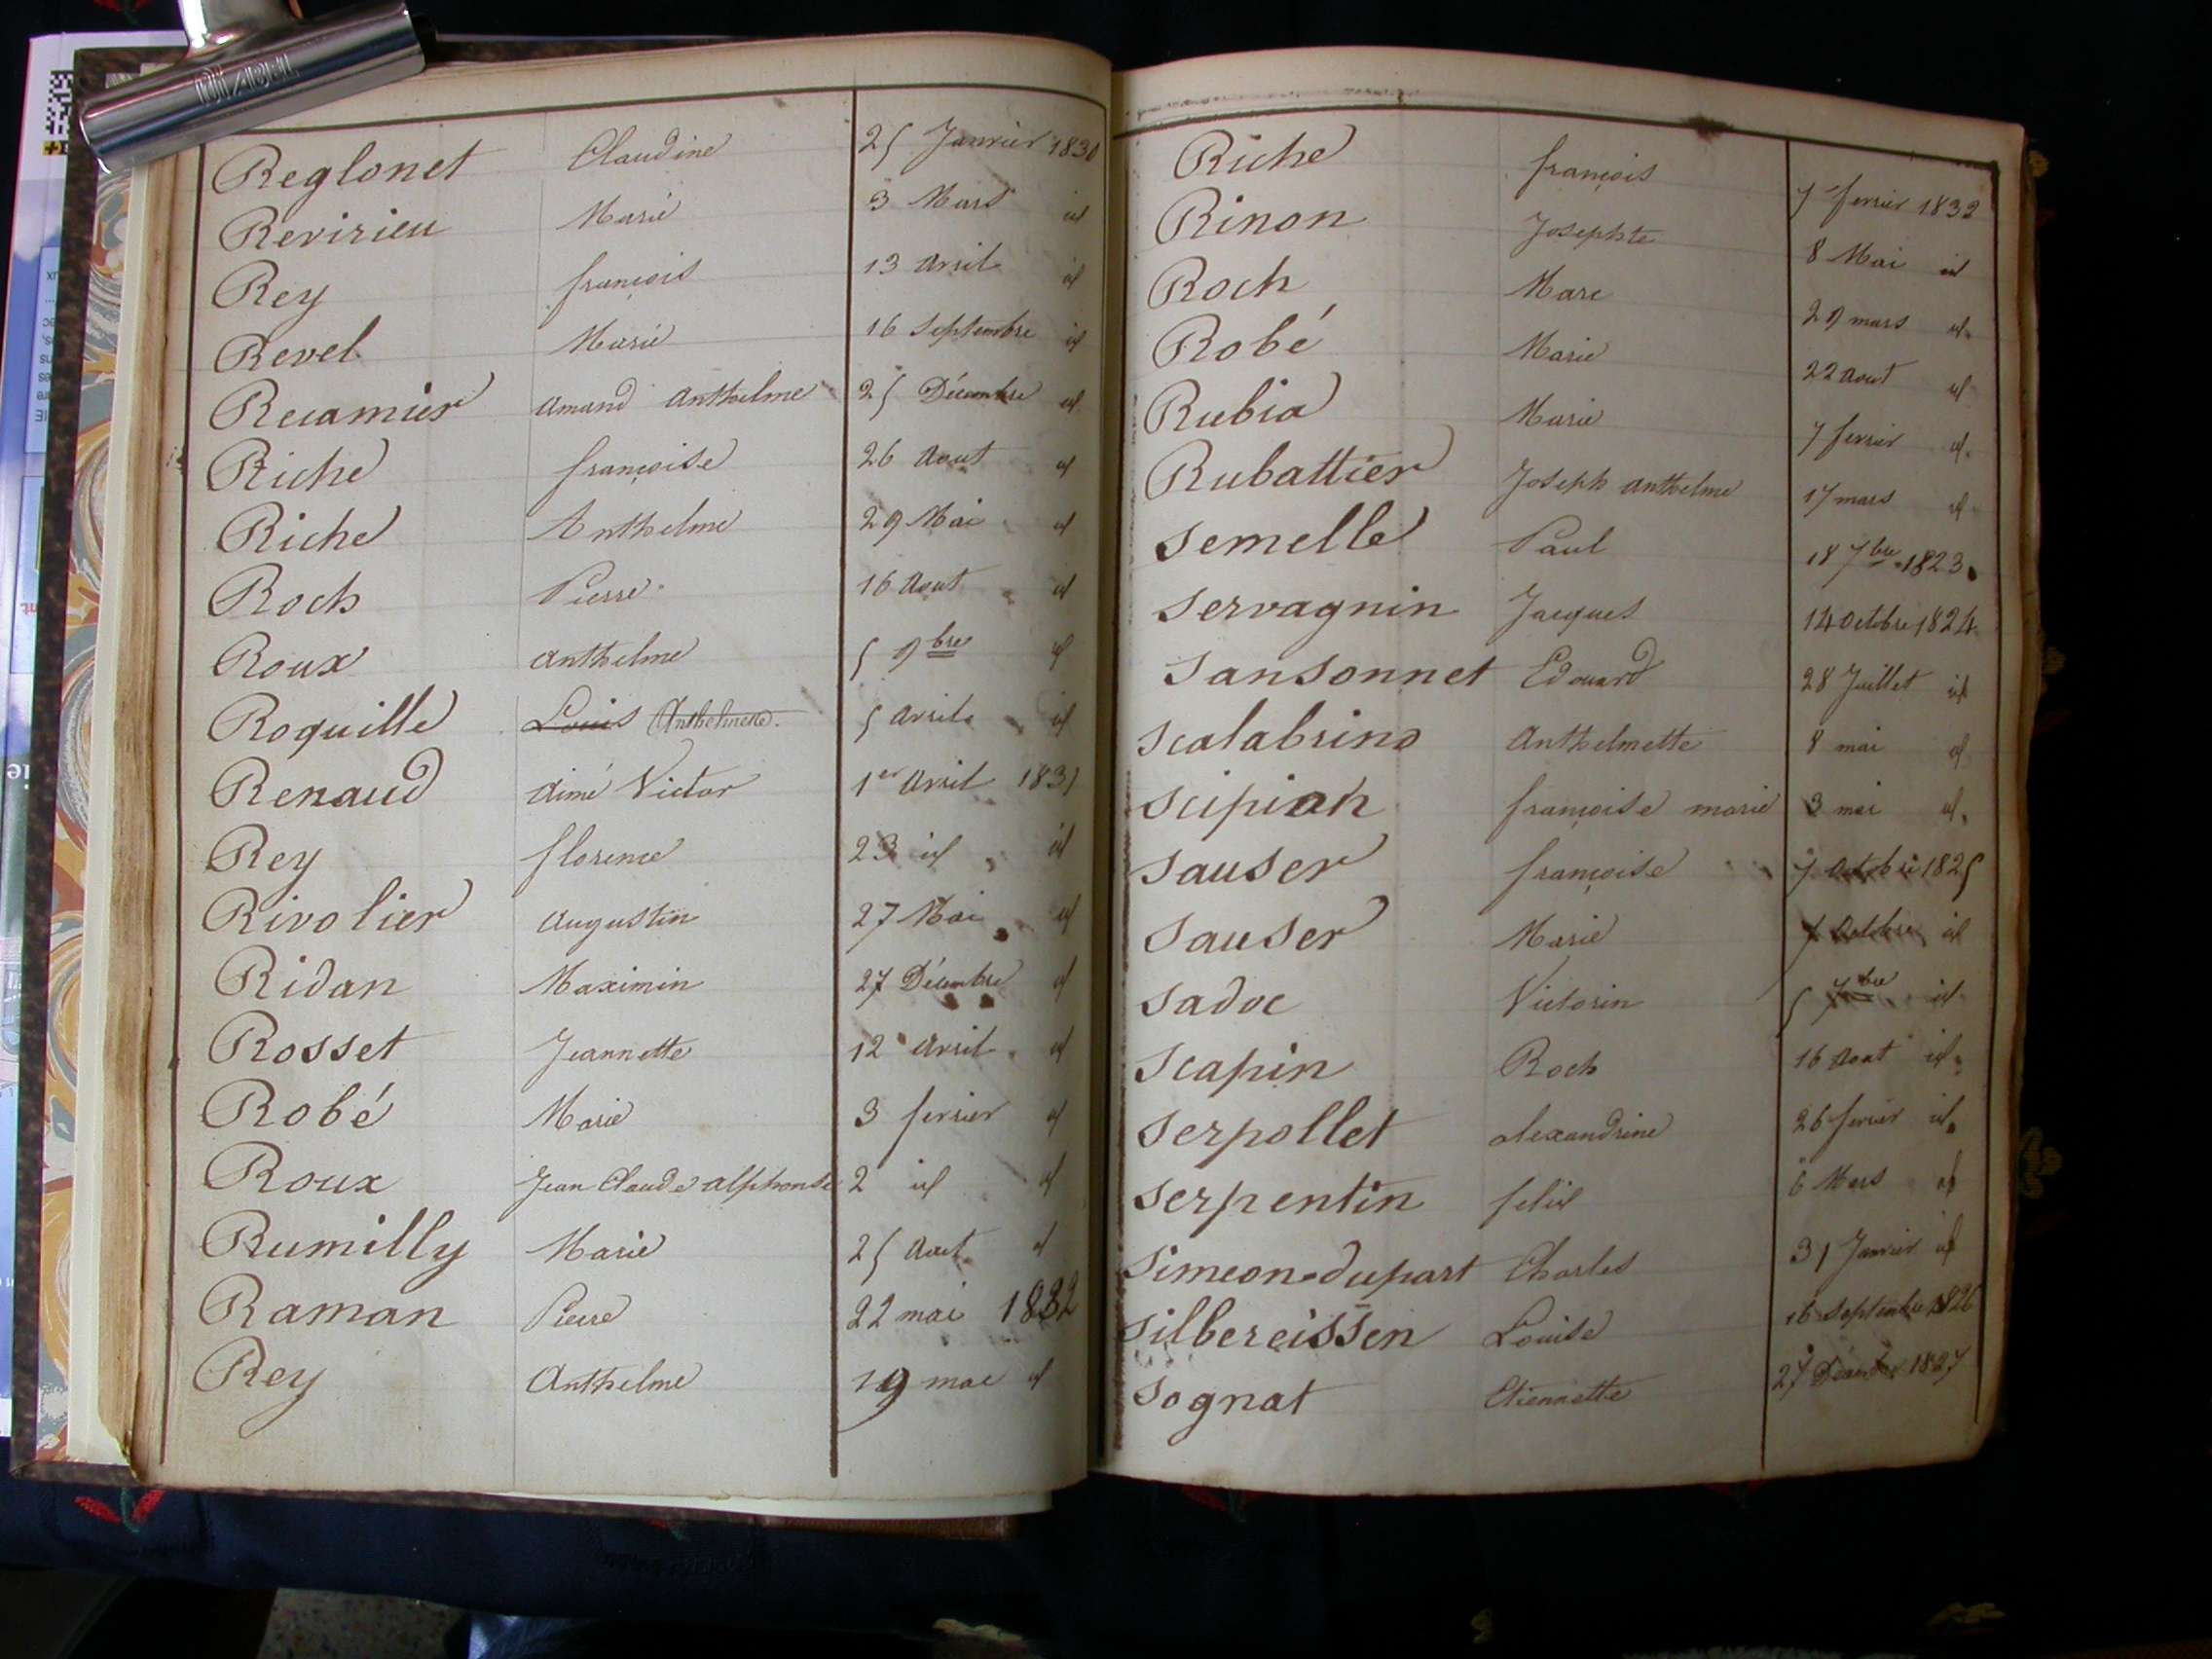 DIABEL
Reglonet Claudine 25 Janvier 1830
Revirieu Marie 3 Mars id
Rey françois 13 Avril id
Revel Marie 16 Septembre id
Recamier Amand Anthelme 25 Décembre id
Riche françoise 26 Aout id
Riche Anthelme 29 Mai id
Roch Pierre 16 Aout id
Roux Anthelme 5 9bre id
Roquille Louis Anthelmette 5 Avril id
Renaud Aimé Victor 1er Avril 1831
Rey florence 23 id id
Rivolier Augustin 27 Mai id
Ridan Maximin 27 Décembre id
Rosset Jeannette 12 Avril id
Robé Marie 3 fevrier id
Roux Jean Claude Alphonse 2 id id
Rumilly Marie 25 Aout id
Raman Pierre 22 mai 1832
Rey Anthelme 19 mai id
Riche françois 7 fevrier 1832
Rinon Josephte 8 Mai id
Roch Marc 29 mars id
Robé Marie 22 Aout id
Rubia Marie 7 fevrier id
Rubattier Joseph Anthelme 17 mars id
Semelle Paul 18 7bre 1823
Servagnin Jacques 14 Octobre 1824
Sansonnet Edouard 28 Juillet id
Scalabrino Anthelmette 8 mai id
Scipion françoise marie 3 mai id
Sauser françoise 7 Octobre 1825
Sauser Marie 7 Octobre id
Sadoc Victorin 5 7bre id
Scapin Roch 16 Aout id
Serpollet Alexandrine 26 fevrier id
Serpentin felix 6 Mars id
Simeon-dupart Charles 31 Janvier id
Silbereissen Louise 16 Septembre 1826
Sognat Etiennette 27 Décembre 1827